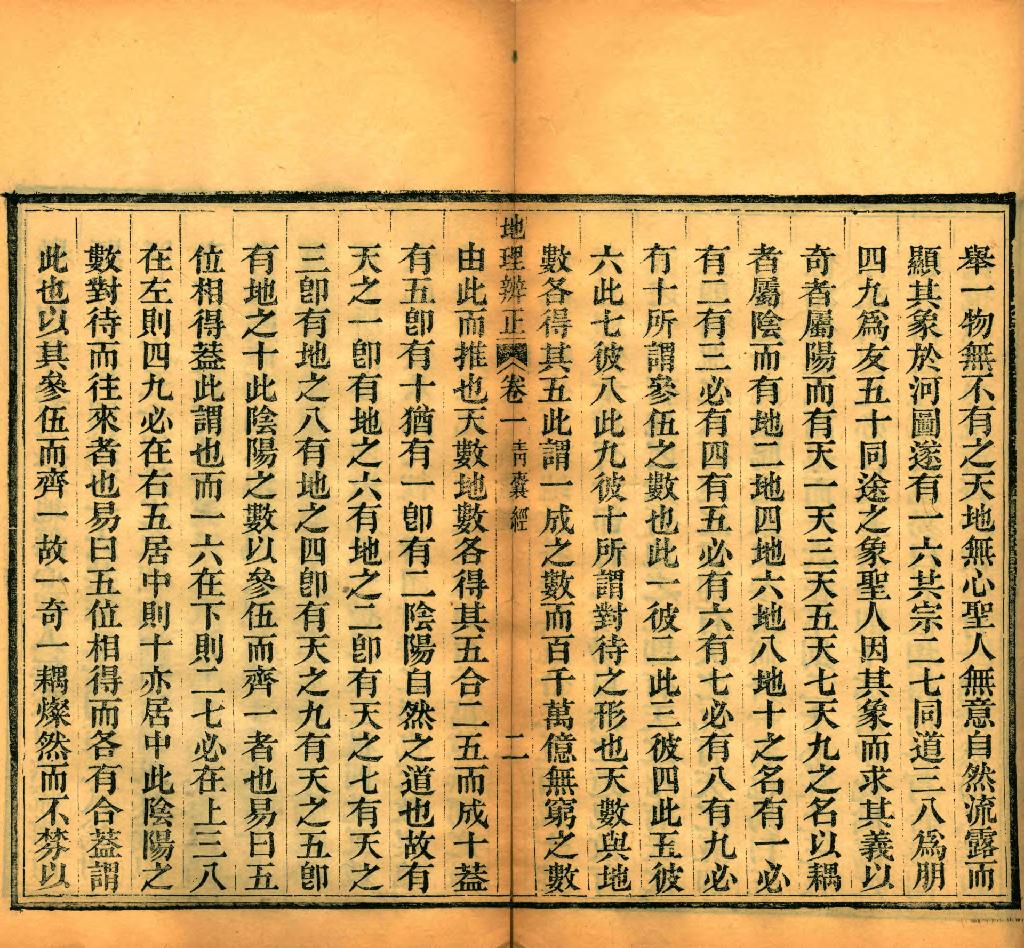 舉一物無不有之天地無心聖人無意自然流露而
顯其象於河圖遂有一六共宗二七同道三八爲朋
四九爲友五十同途之象聖人因其象而求其義以
奇者屬陽而有天一天三天五天七天九之名以耦
者屬陰而有地二地四地六地八地十之名有一必
有二有三必有四有五必有六有七必有八有九必
有十所謂參伍之數也此一彼二此三彼四此五彼
六此七彼八此九彼十所謂對待之形也天數與地
數各得其五此謂一成之數而百千萬億無窮之數
地理辨正 卷一 青囊經 二
由此而推也天數地數各得其五合二五而成十蓋
有五卽有十猶有一卽有二陰陽自然之道也故有
天之一卽有地之六有地之二卽有天之七有天之
三卽有地之八有地之四卽有天之九有天之五卽
有地之十此陰陽之數以參伍而齊一者也易曰五
位相得蓋此謂也而一六在下則二七必在上三八
在左則四九必在右五居中則十亦居中此陰陽之
數對待而往來者也易曰五位相得而各有合蓋謂
此也以其參伍而齊一故一奇一耦燦然而不棼以